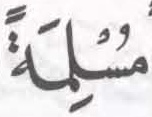 مُسْلِمَةً